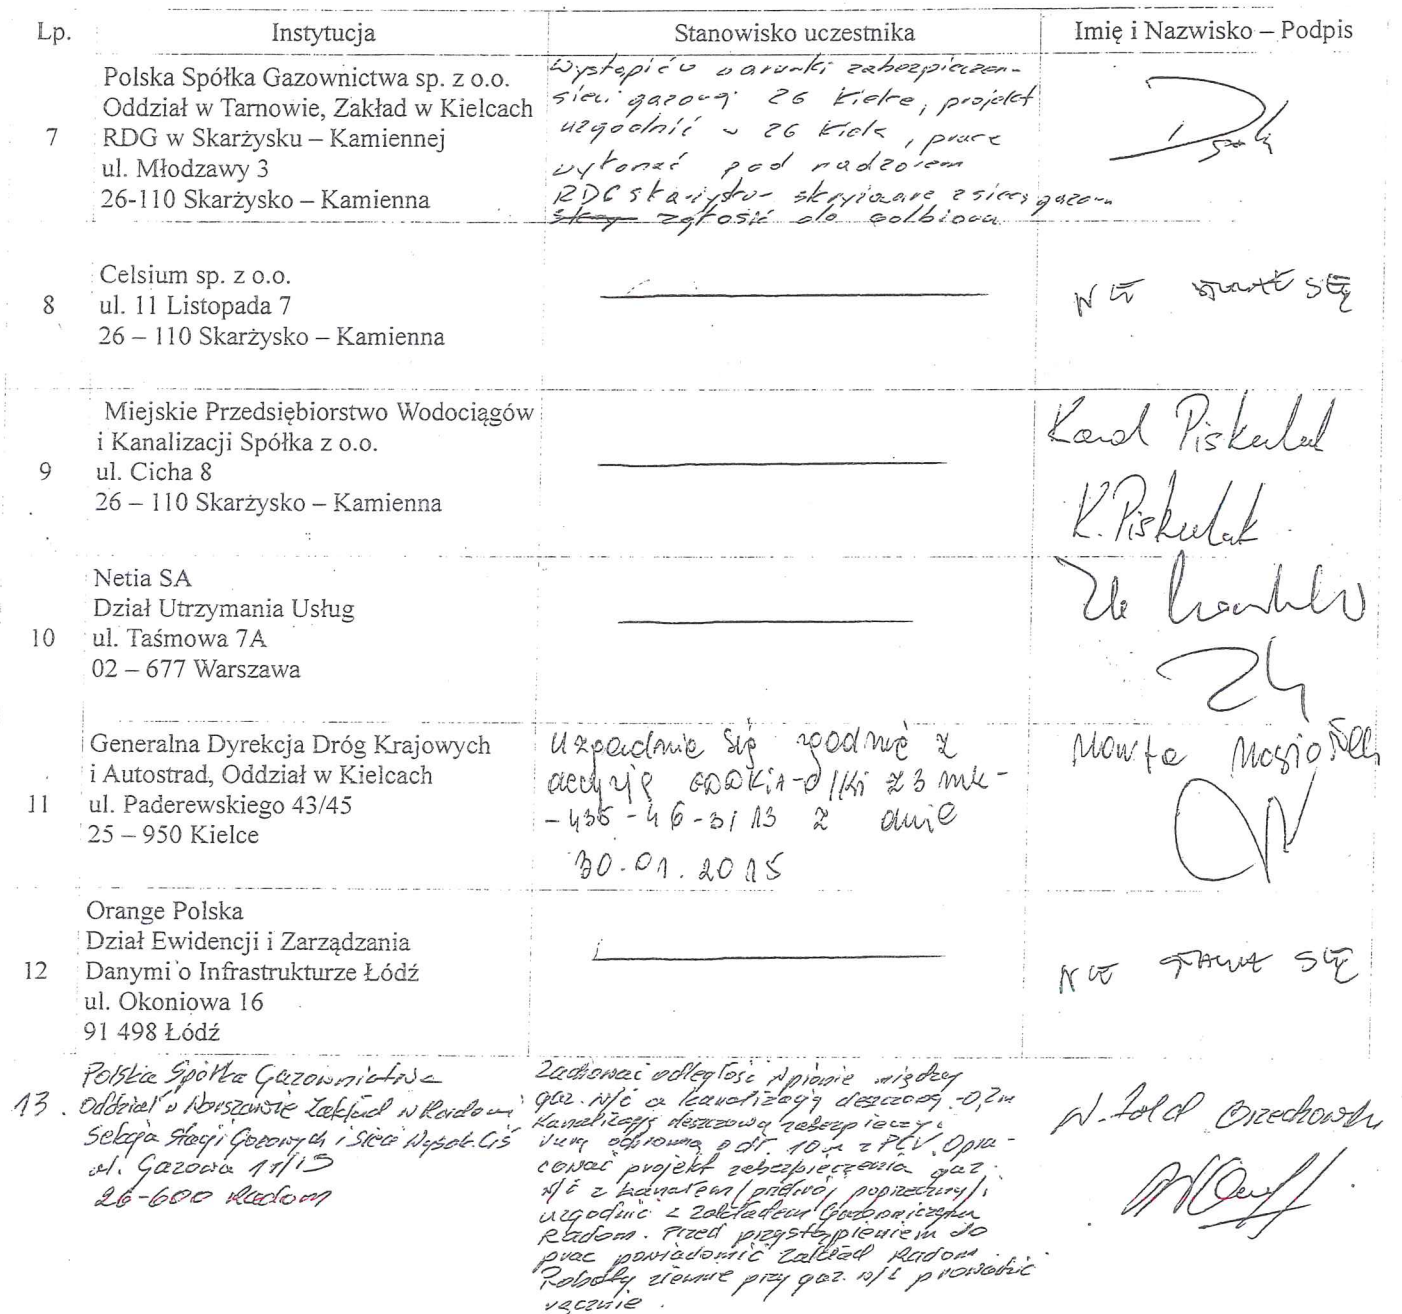 Lp. Instytucja Stanowisko uczestnika Imię i Nazwisko – Podpis
7
Polska Spółka Gazownictwa sp. z o.o.
Oddział w Tarnowie, Zakład w Kielcach
RDG w Skarżysku – Kamiennej
ul. Młodzawy 3
26-110 Skarżysko – Kamienna
Wystąpić o warunki zabezpieczen-
sieci gazowej projekt
uzgodnić w , prace
wykonać pod nadzorem
RDG Skarżysko- z sieci gazow
zgłosić do odbioru
8
Celsium sp. z o.o.
ul. 11 Listopada 7
26 – 110 Skarżysko – Kamienna
SIĘ
9
Miejskie Przedsiębiorstwo Wodociągów
i Kanalizacji Spółka z o.o.
ul. Cicha 8
26 – 110 Skarżysko – Kamienna
Karol Piskulak
K. Piskulak
10
Netia SA
Dział Utrzymania Usług
ul. Taśmowa 7A
02 – 677 Warszawa
11
Generalna Dyrekcja Dróg Krajowych
i Autostrad, Oddział w Kielcach
ul. Paderewskiego 43/45
25 – 950 Kielce
Uzgadnia się zgodnie z
decyzją
z dnia
30.01.2015
12
Orange Polska
Dział Ewidencji i Zarządzania
Danymi o Infrastrukturze Łódź
ul. Okoniowa 16
91 498 Łódź
SIĘ
13.
Polska Spółka Gazownictwa
Oddział w Warszawie Zakład w Radomiu
Sekcja Stacji Gazowych i Sieci Wysok. Ciś
ul. Gazowa 11/13
26-600 Radom
Zachować odległość w pionie między
gaz. w/c a kanalizacją deszczową -0,2m
Kanalizację deszczową zabezpieczyć
rurą ochronną o dł. 10m z PCV. Opra-
cować projekt zabezpieczenia gaz.
w/c z kanałem poprzeczny/i
uzgodnić z Zakładem Gazowniczym
Radom. Przed przystąpieniem do
prac powiadomić Zakład Radom.
Roboty ziemne przy gaz. w/c prowadzić
ręcznie.
Orzechowski